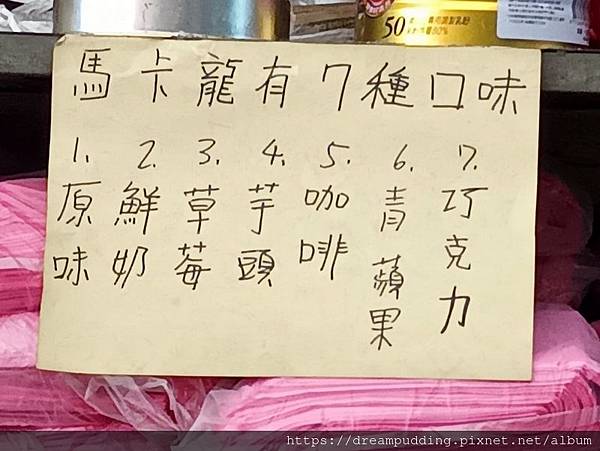 50
馬卡龍有7種口味
1. 2. 3. 4. 5. 6. 7.
原味
鮮奶
草莓
芋頭
咖啡
青蘋果
巧克力
https://dreampudding.pixnet.net/album